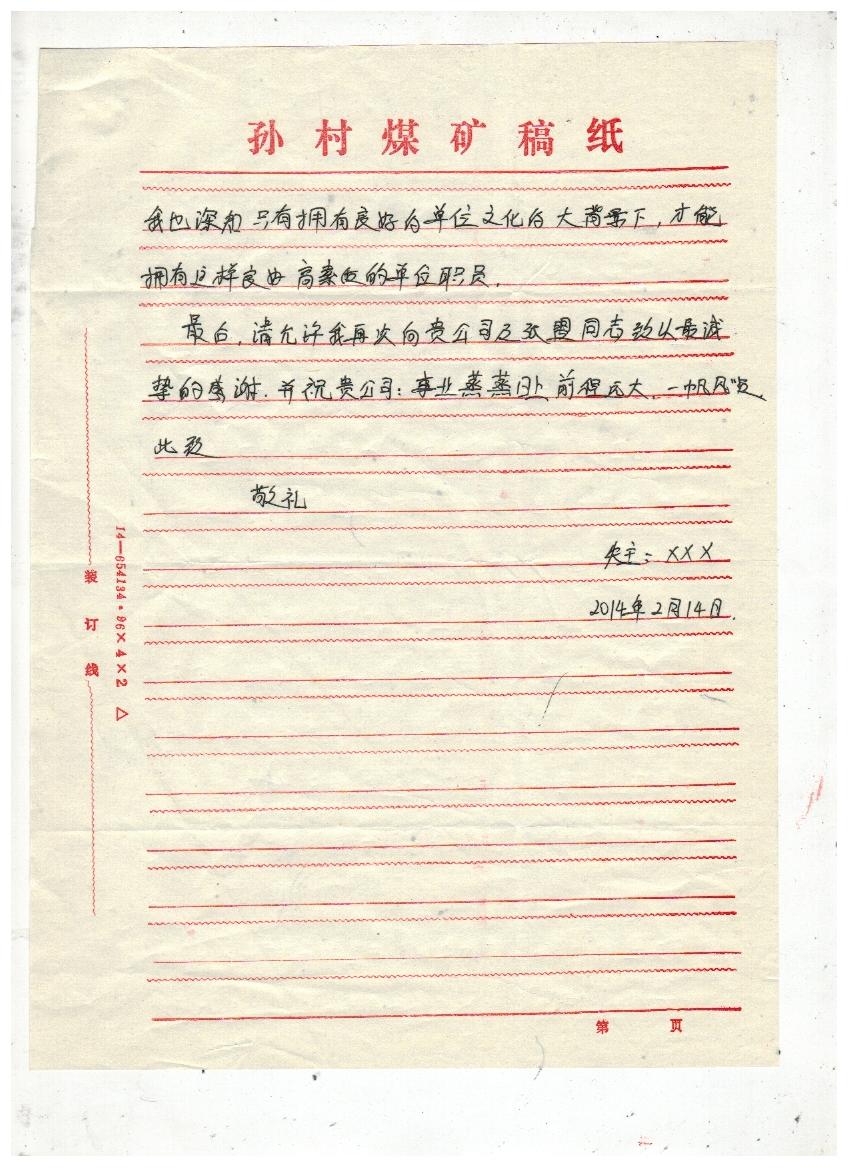 孙村煤矿稿纸
我也深知只有拥有良好的单位文化的大背景下，才能
拥有这样良好高素质的单位职员。
最后，请允许我再次向贵公司及张盟同志致以最诚
挚的感谢．并祝贵公司：事业蒸蒸日上 前程远大．一帆风顺．
此致
敬礼
失主：XXX
2014年2月14日．
装订线
14—654134·96×4×2 △
第 页